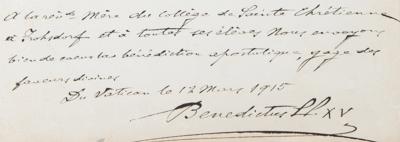 A la révde Mère du Collège de Sainte Chrétienne
à Frohsdorf et à toutes ses élèves Nous envoyons
bien de coeur las bénédiction apostolique, gage des
faveurs divines
Du Vatican le 12 Mars 1915
Benedictus PP. XV